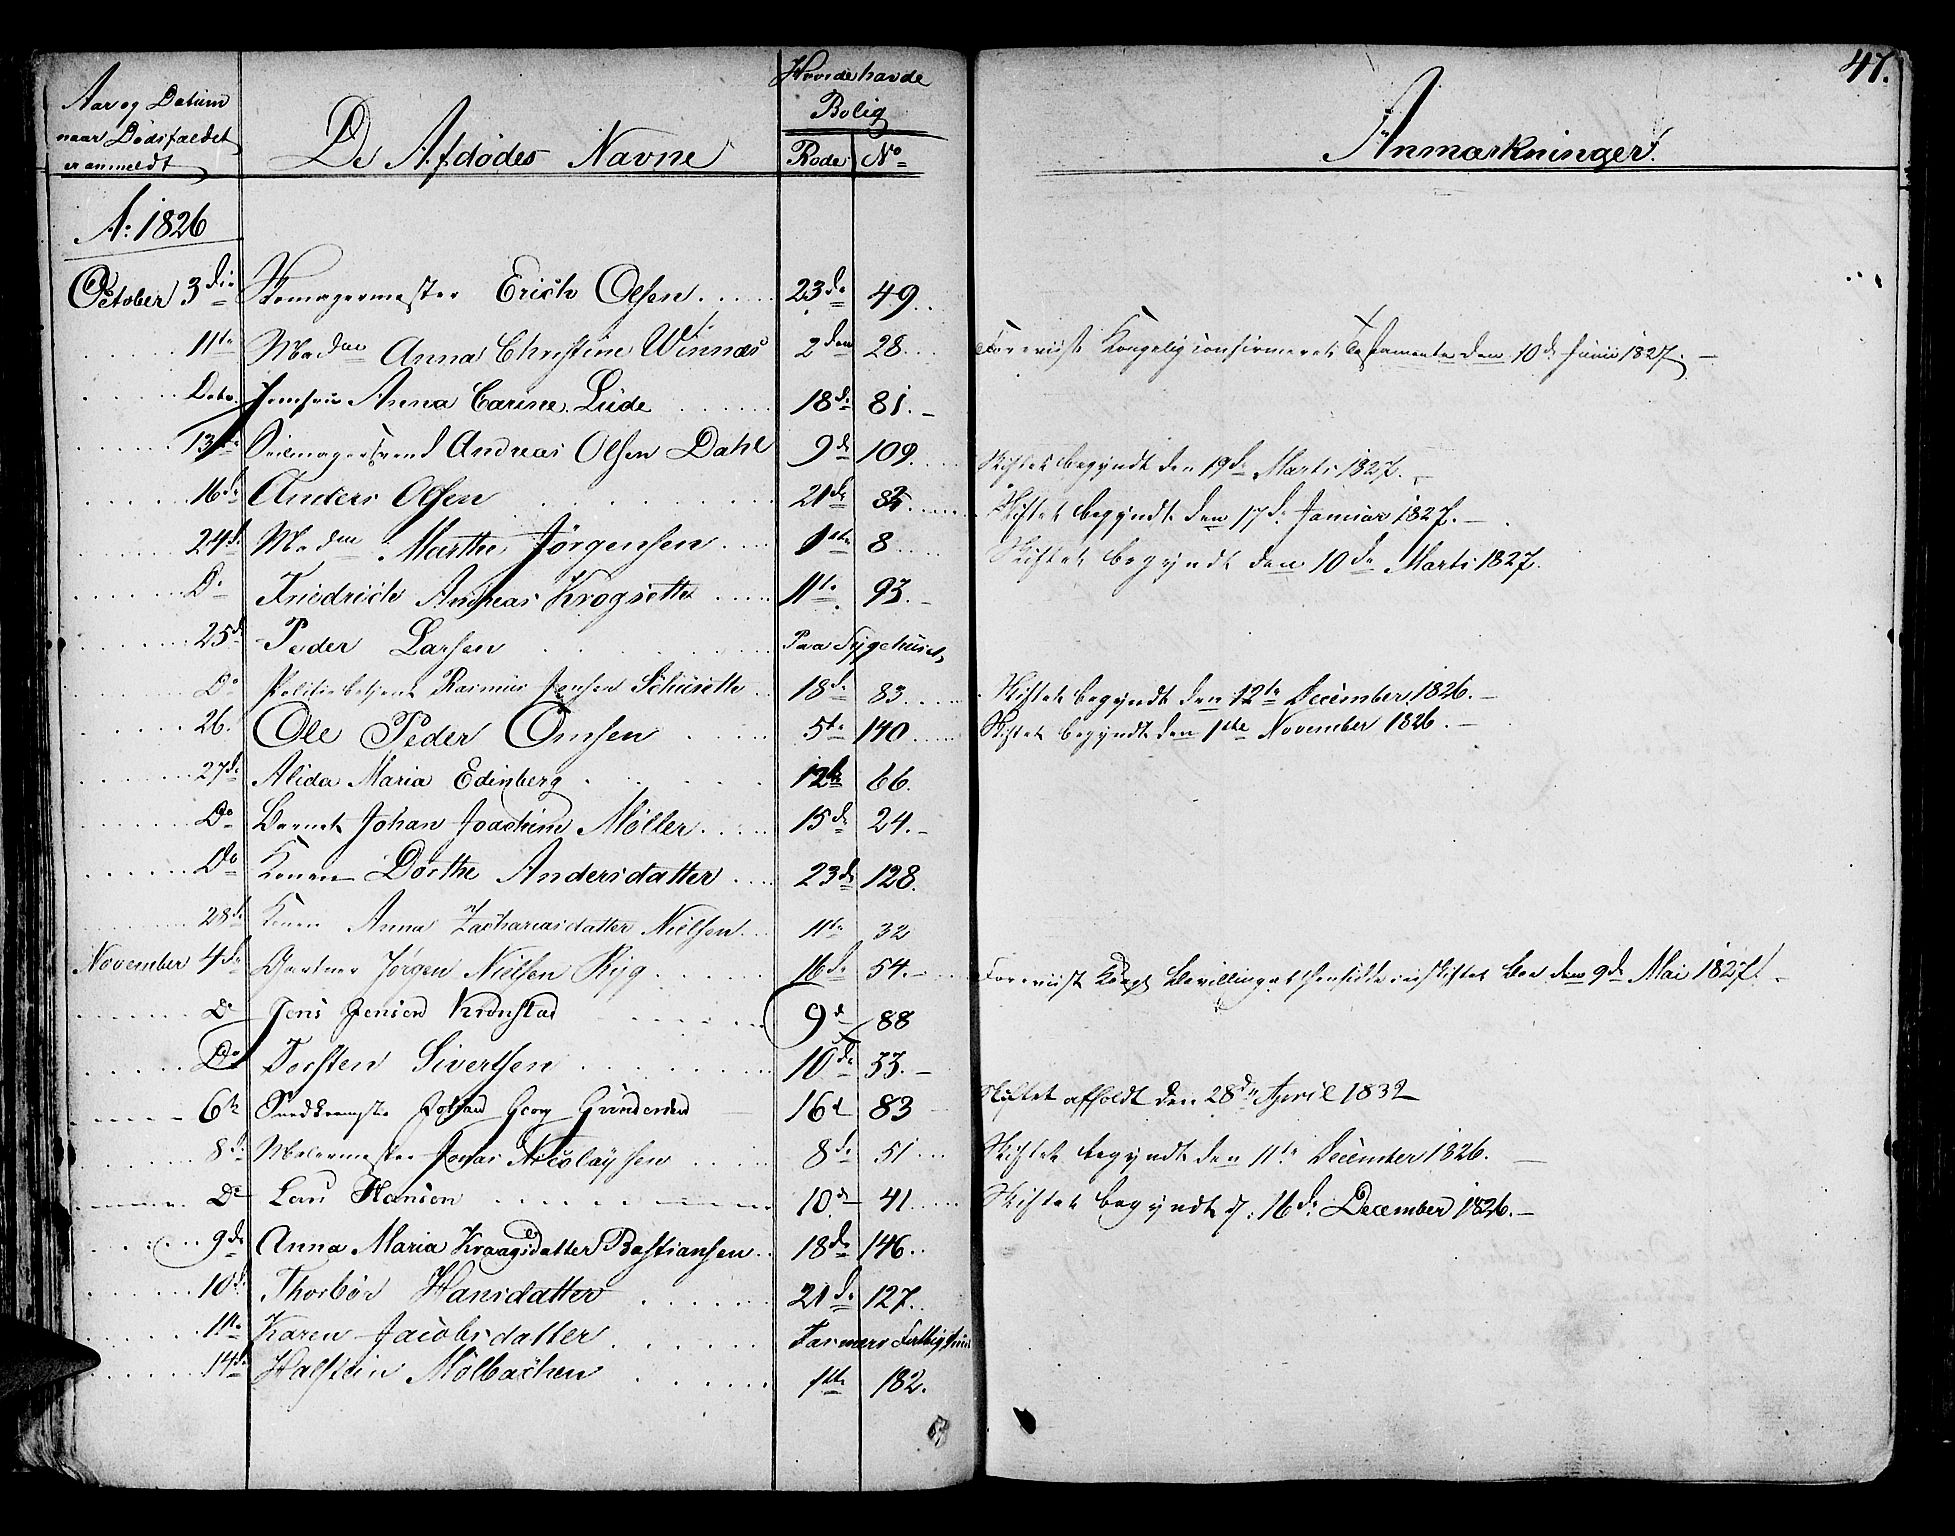 47.
Aar og Datum
naar Dødsfaldet
er anmeldt
De Afdødes Navne
Hvor de havde
Bolig
Rode No
Anmærkninger.
A: 1826
October 3die Skomagermester Erich Olsen 23de 49
11te Madme Anna Christine Winnes 2den 28 Foreviist Kongelig confirmeret Testamente den 10de Junii 1827.
Dito Jomfrue Anna Carine Lude 18de 81.
13de Seilmagersvend Andreas Olsen Dahl 9de 109. Skiftet begyndt den 19de Marts 1827.
16de Anders Olsen 21de Skiftet begyndt den 17de Januar 1827.
24de Madme Marthe Jørgensen 1ste 8 Skiftet begyndt den 10de Marts 1827.
Do Friedrich Andreas Krogseth 11te 93.
25de Peder Larsen Paa Sygehuset
Do Politiebetjent Rasmus Jensen Schusett 18de 83 Skiftet begyndt den 12te December 1826.
26. Ole Peder Omsen 5te 140 Skiftet begyndt den 1ste November 1826.
27de Alida Maria Edinberg 12te 66.
Do Barnet Johan Joachim Möller 15de 24.
Do Konen Dorthe Andersdatter 23de 128.
28de Konen Anna Zachariasdatter Nielsen 11te 32
November 4de Gartner Jørgen Nielsen Ryg 16de 54. Foreviist Kongl Bevilling at hensidde i uskiftet Boe den 9de Mai 1827.
Do Jens Jensen Kronstad 9d 88
Do Torsten Sivertsen 10de 33.
6te Johan Georg 16d 83 Skiftet afholdt den 28de April 1832
8de Malermester Jonas Nicolaysen 8de 51 Skiftet begyndt den 11te December 1826.
Do Lars Hansen 10de 41 Skiftet begyndt d: 16de December 1826.
9de Anna Maria Kraagsdatter Bastiansen 18de 146
10de Thorbør Hansdatter 21de 127.
11te Karen Jacobsdatter
14de Halstein Mölbachen 1ste 182.